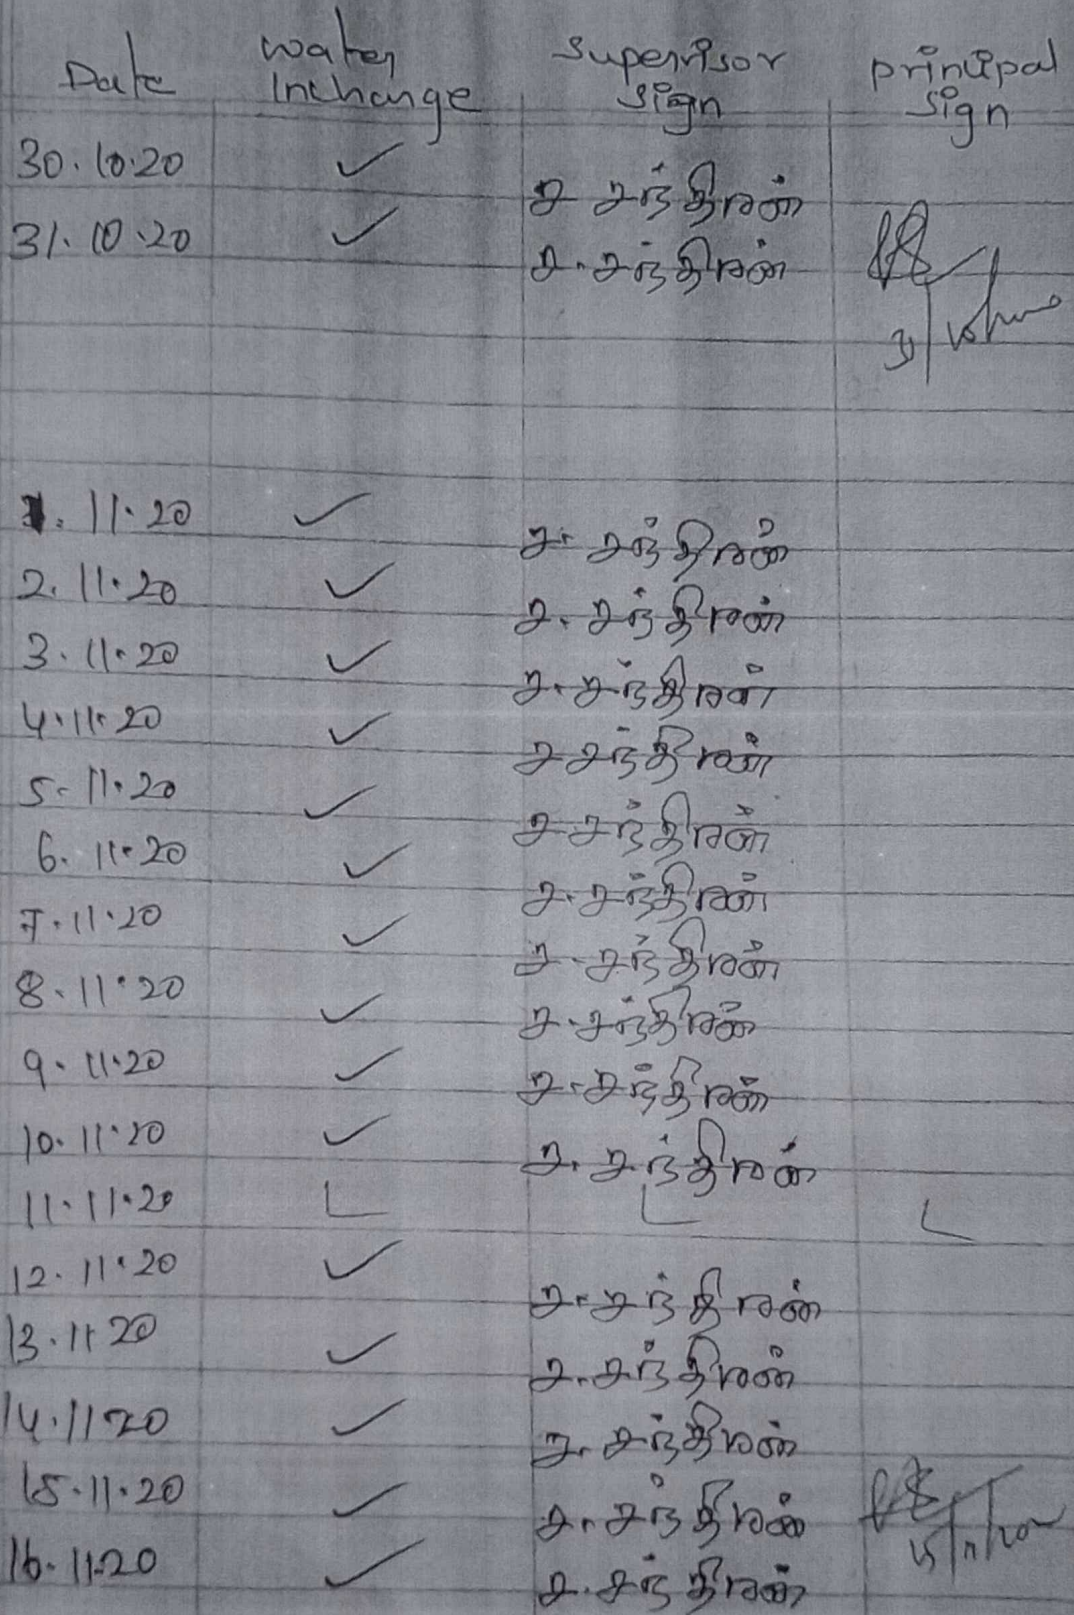 Date Water Incharge Supervisor Sign Principal Sign
30.10.20 ✓ ச சந்திரன்
31.10.20 ✓ ச. சந்திரன்
1.11.20 ✓ ச. சந்திரன்
2.11.20 ✓ ச. சந்திரன்
3.11.20 ✓ ச. சந்திரன்
4.11.20 ✓ ச சந்திரன்
5.11.20 ✓ ச சந்திரன்
6.11.20 ✓ ச. சந்திரன்
7.11.20 ✓ ச. சந்திரன்
8.11.20 ✓ ச. சந்திரன்
9.11.20 ✓ ச. சந்திரன்
10.11.20 ✓ ச. சந்திரன்
11.11.20 L L L
12.11.20 ✓ ச. சந்திரன்
13.11.20 ✓ ச. சந்திரன்
14.11 20 ✓ ச. சந்திரன்
15.11.20 ✓ ச. சந்திரன்
16.11.20 ✓ ச. சந்திரன்